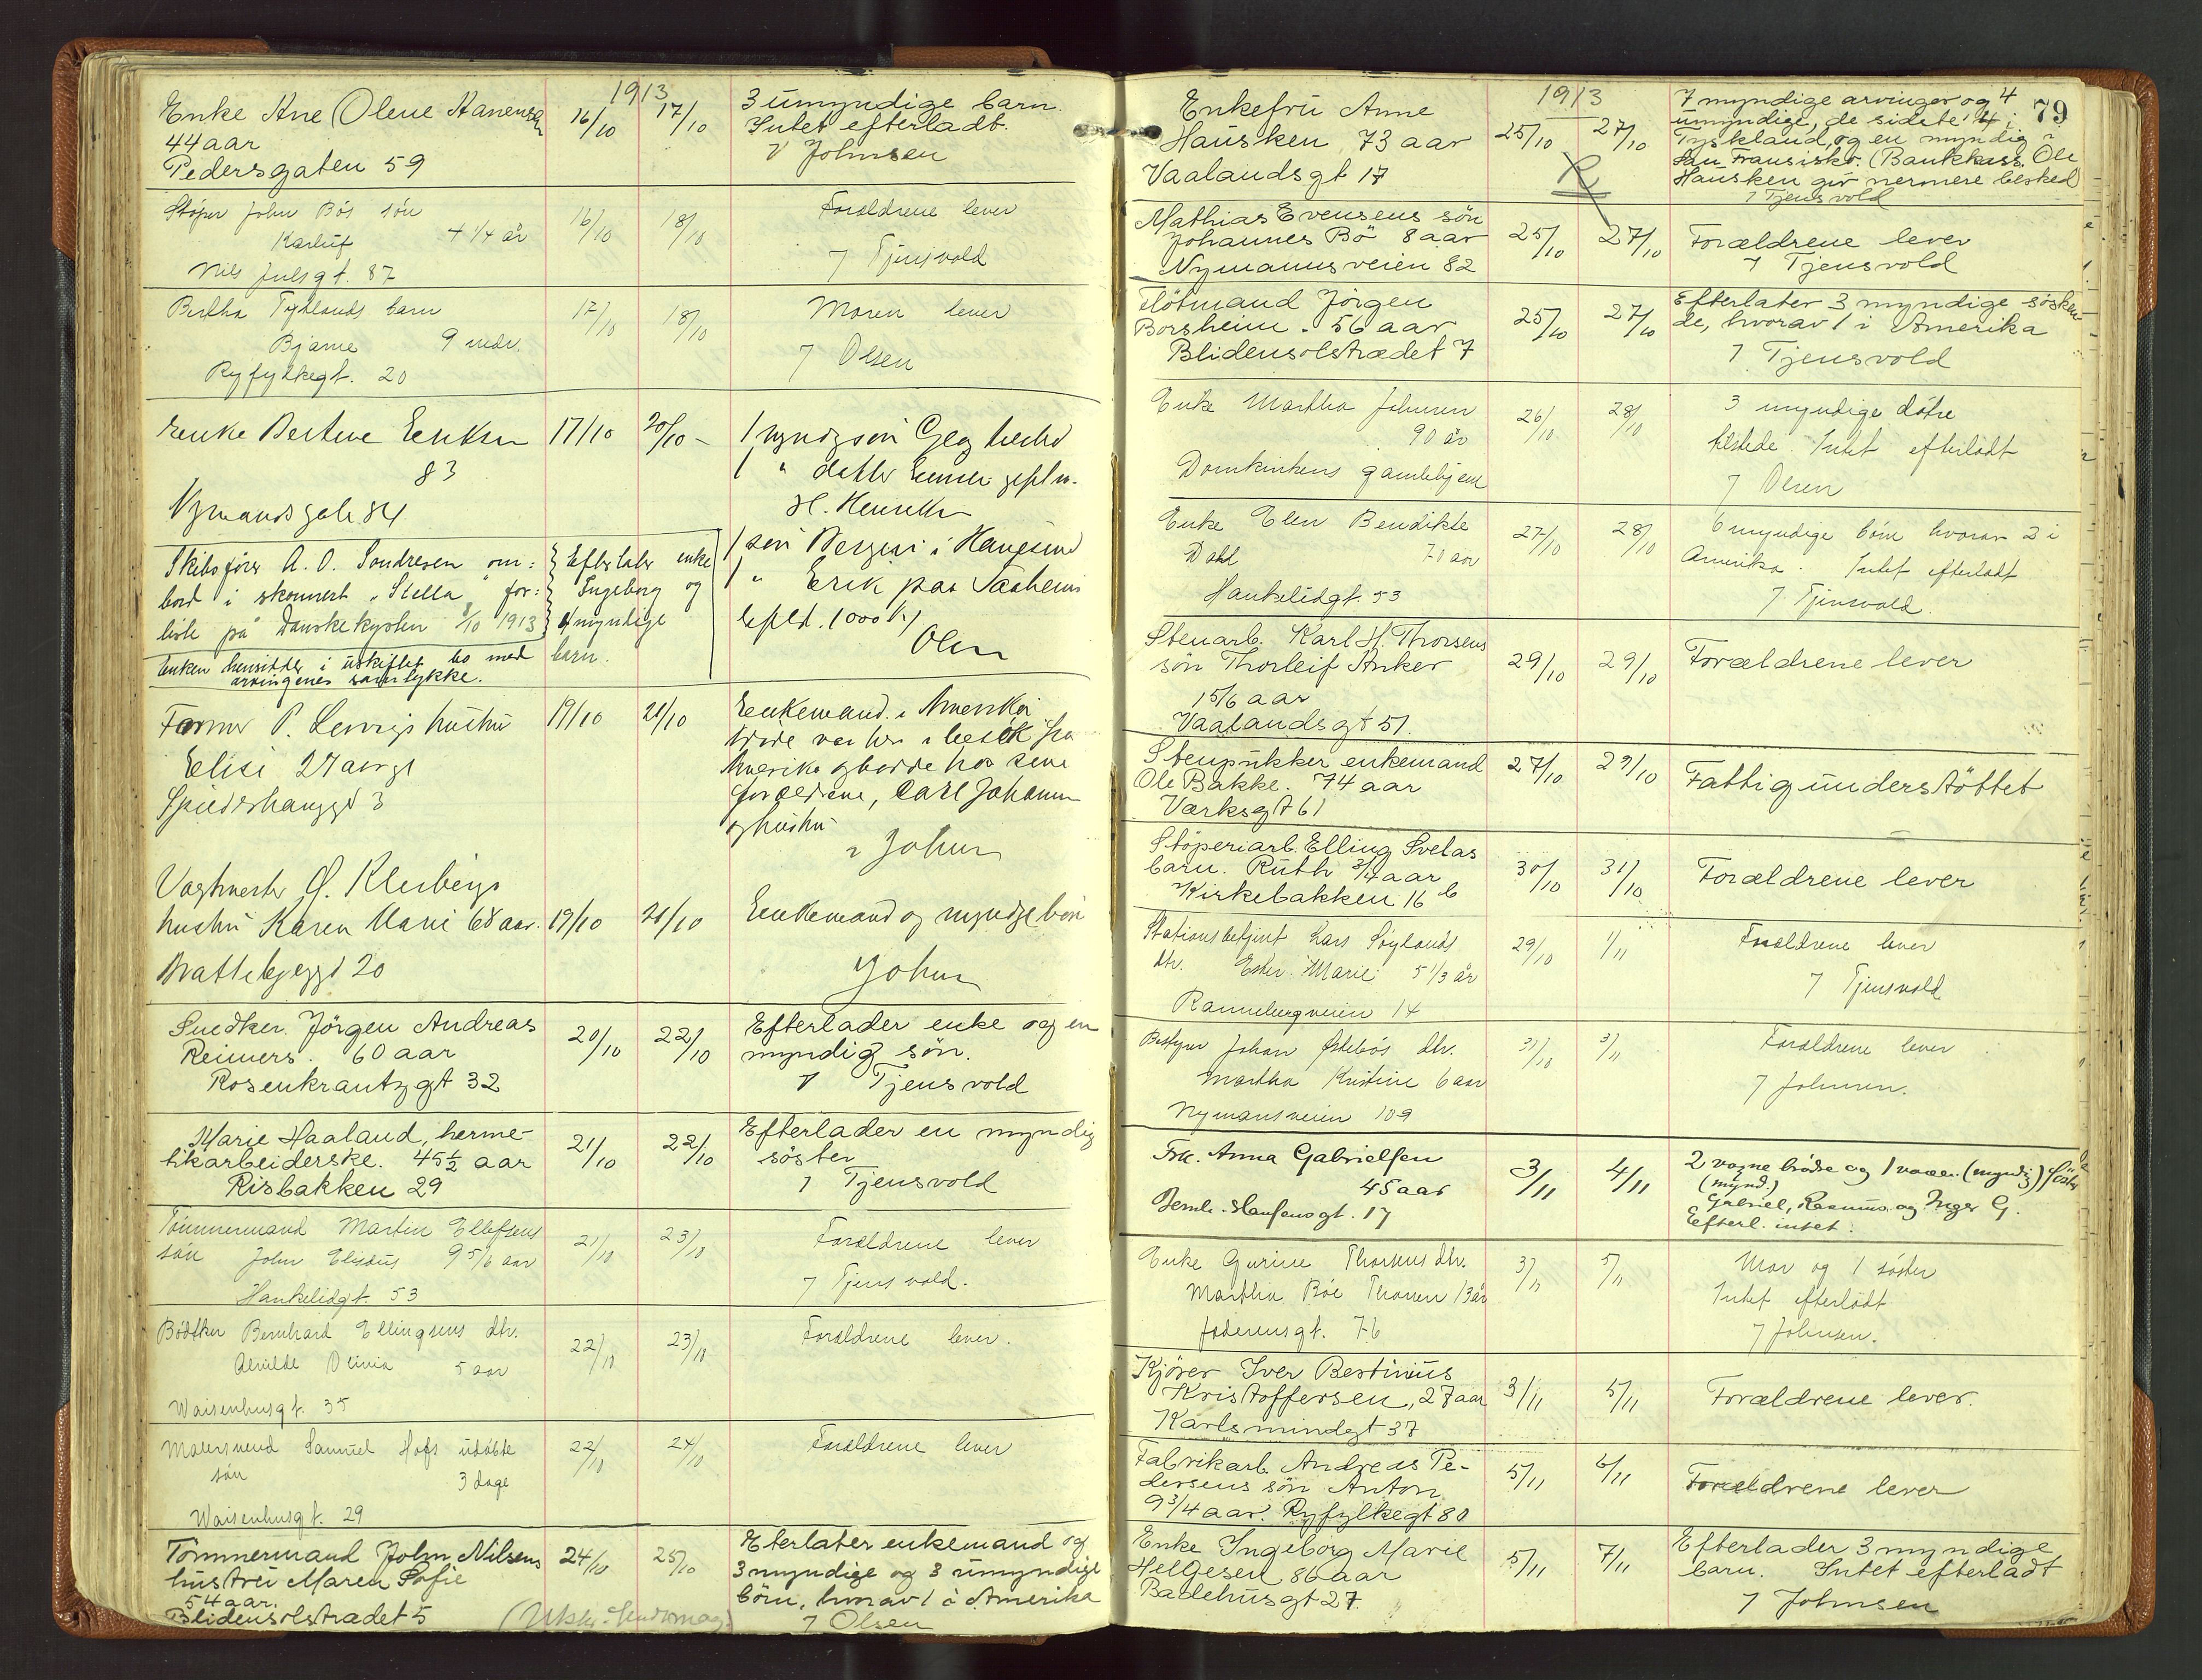 1913
Enke Ane Oline Hanensen
44 aar
Pedersgaten 59
16/10
17/10
3 umyndige barn.
Intet efterladt.
7 Johnsen
Støper John Bøs søn
Karluf 4 1/4 år
Nils Julsgt. 87
16/10
18/10
Forældrene lever
7 Tjensvold
Bertha Tydlands barn
Bjarne 9 mdr.
Ryfylkegt. 20
17/10
18/10
Moren lever
7 Olsen
Enke Bertine Eriksen
83
Nymandsgate 84
17/10
20/10 -
1 myndig søn Georg
1 " datter
H. Henriksen
1 søn i Haugesund
1 " Erik paa
1000 Kr
Olsen
Skibsfører A. O. Sondresen om=
bord i skonnert "Stella" for=
liste på Danskekysten 8/10 1913
Efterlater enke
Ingeborg og
4 myndige
barn.
Enken hensidder i uskiftet bo med
arvingenes samtykke.
Farmer P. Lervigs hustru
Elise 27 aar
3
19/10
21/10
Enkemand i Amerika
var her i besøk fra
Amerika og boede hos sine
forældrene, Carl Johannsen
og hustru
7 Johnsen
Vagtmester O. Kleibergs
hustru Karen Marie 68 aar.
20
19/10
21/10
Enkemand og myndige børn
Johnsen
Snedker Jörgen Andreas
Reimers. 60 aar
Rosenkrantzgt 32
20/10
22/10
Efterlader enke og en
myndig søn.
7 Tjensvold
Marie Haaland, herme-
tikarbeiderske. 45½ aar
Risbakken 29
21/10
22/10
Efterlader en myndig
søster
7 Tjensvold
Tømmermand Martin Ellefsens
søn John Elisæus 9 5/6 aar
Hankelidgt. 53
21/10
23/10
Forældrene lever
7 Tjensvold.
Bødtker Bernhard Ellingsens dtr.
Alvilde Olivia 5 aar
Waisenhusgt. 35
22/10
23/10
Forældrene lever.
Malersvend Samuel Hofs udøbte
søn 3 dage
Waisenhusgt. 29
22/10
24/10
Forældrene lever
Tömmermand John Nilsens
hustru Maren Sofie
54 aar.
Blidensolstrædet 5
24/10
25/10
Eterlater enkemand og
3 myndige og 3 umyndige
børn, hvorav 1 i Amerika
7 Olsen
79
1913
Enkefru Anne
Hausken 73 aar
Vaalandsgt 17
25/10
27/10
R
7 myndige arvinger og 4
umyndige, de sidste 4 i
Tyskland, og en myndig i
San Fransisko. (Bankkass. Ole
Hausken gir nermere besked
7 Tjensvold
Mathias Evensens søn
Johannes Bø 8 aar
Nymannsveien 82
25/10
27/10
Forældrene lever
7 Tjensvold
Fløtmand Jörgen
Borsheim. 56 aar
Blidensolstrædet 7
25/10
27/10
Efterlater 3 myndige søsken-
de, hvorav 1 i Amerika
7 Tjensvold
Enke Martha Johnsen
90 år
Domkirkens gamlehjem
26/10
28/10
3 myndige døtre
tilstede. Intet efterladt
7 Olsen
Enke Elen Bendikte
Dahl 70 aar
Hankelidgt. 53
27/10
28/10
6 myndige børn hvorav 2 i
Amerika. Intet efterladt
7 Tjensvold.
Stenarb. Karl H. Thorsens
søn Thorleif Anker
1 5/6 aar
Vaalandsgt 51.
29/10
29/10
Forældrene lever
Stenpukker enkemand
Ole Bakke. 74 aar
Værksgt 61
27/10
29/10
Fattigunderstöttet
Støperiarb. Elling Svelas
barn. Ruth 3/4 aar
Kirkebakken 16 b
30/10
31/10
Forældrene lever
Stationsbetjent Lars Søylands
dtr. Ester Marie 5 1/3 år
Rannebergveien 14
29/10
1/11
Forældrene lever
7 Tjensvold
Bestyrer Johan Østebøs dtr.
Martha Kristine 6 aar
Nymansveien 109
31/10
3/11
Forældrene lever
7 Johnsen.
Frk. Anna Gabrielsen
45 aar
Bernh. Hansensgt. 17
3/11
4/11
2 voxne brødre og 1 voxen (myndig) søster
(mynd.)
Gabriel, Rasmus og Inger G.
Efterl. intet.
Enke Gurine Thorsens dtr.
Martha Bøe Thorsen 13 år
Jæderensgt. 76
3/11
5/11
Mor og 1 søster
Intet efterladt
7 Johnsen.
Kjörer Iver Bertinius
Kristoffersen, 27 aar
Karlsmindegt 37
3/11
5/11
Forældrene lever.
Fabrikarb. Andreas Pe-
dersens søn Anton
9 3/4 aar. Ryfylkegt 80
5/11
6/11
Forældrene lever
Enke Ingeborg Marie
Helgesen 86 aar
Badehusgt 27
5/11
7/11
Efterlader 3 myndige
barn. Intet efterladt
7 Johnsen